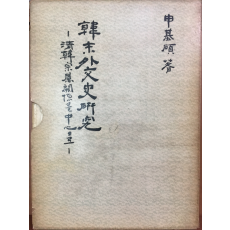 申基碩 著
韓末外交史硏究
-淸韓宗屬關係를 中心으로-